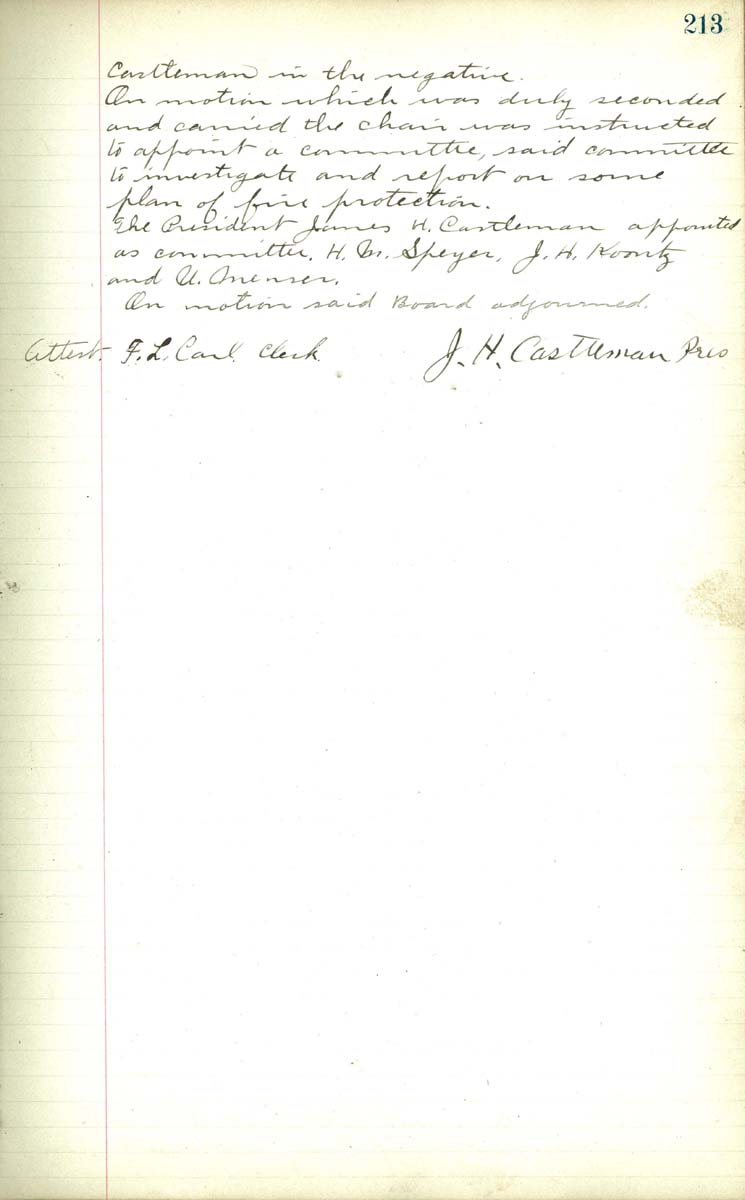 213
Castleman in the negative.
On motion which was duly seconded
and carried the chair was instructed
to appoint a committee, said committee
to investigate and report on some
plan of fire protection.
The President James H. Castleman appointed
as committee, H. M. Speyer, J. H. Koontz
and U. Menser.
On motion said Board adjourned.
Attest. F. L. Carl. Clerk. J. H. Castleman Pres